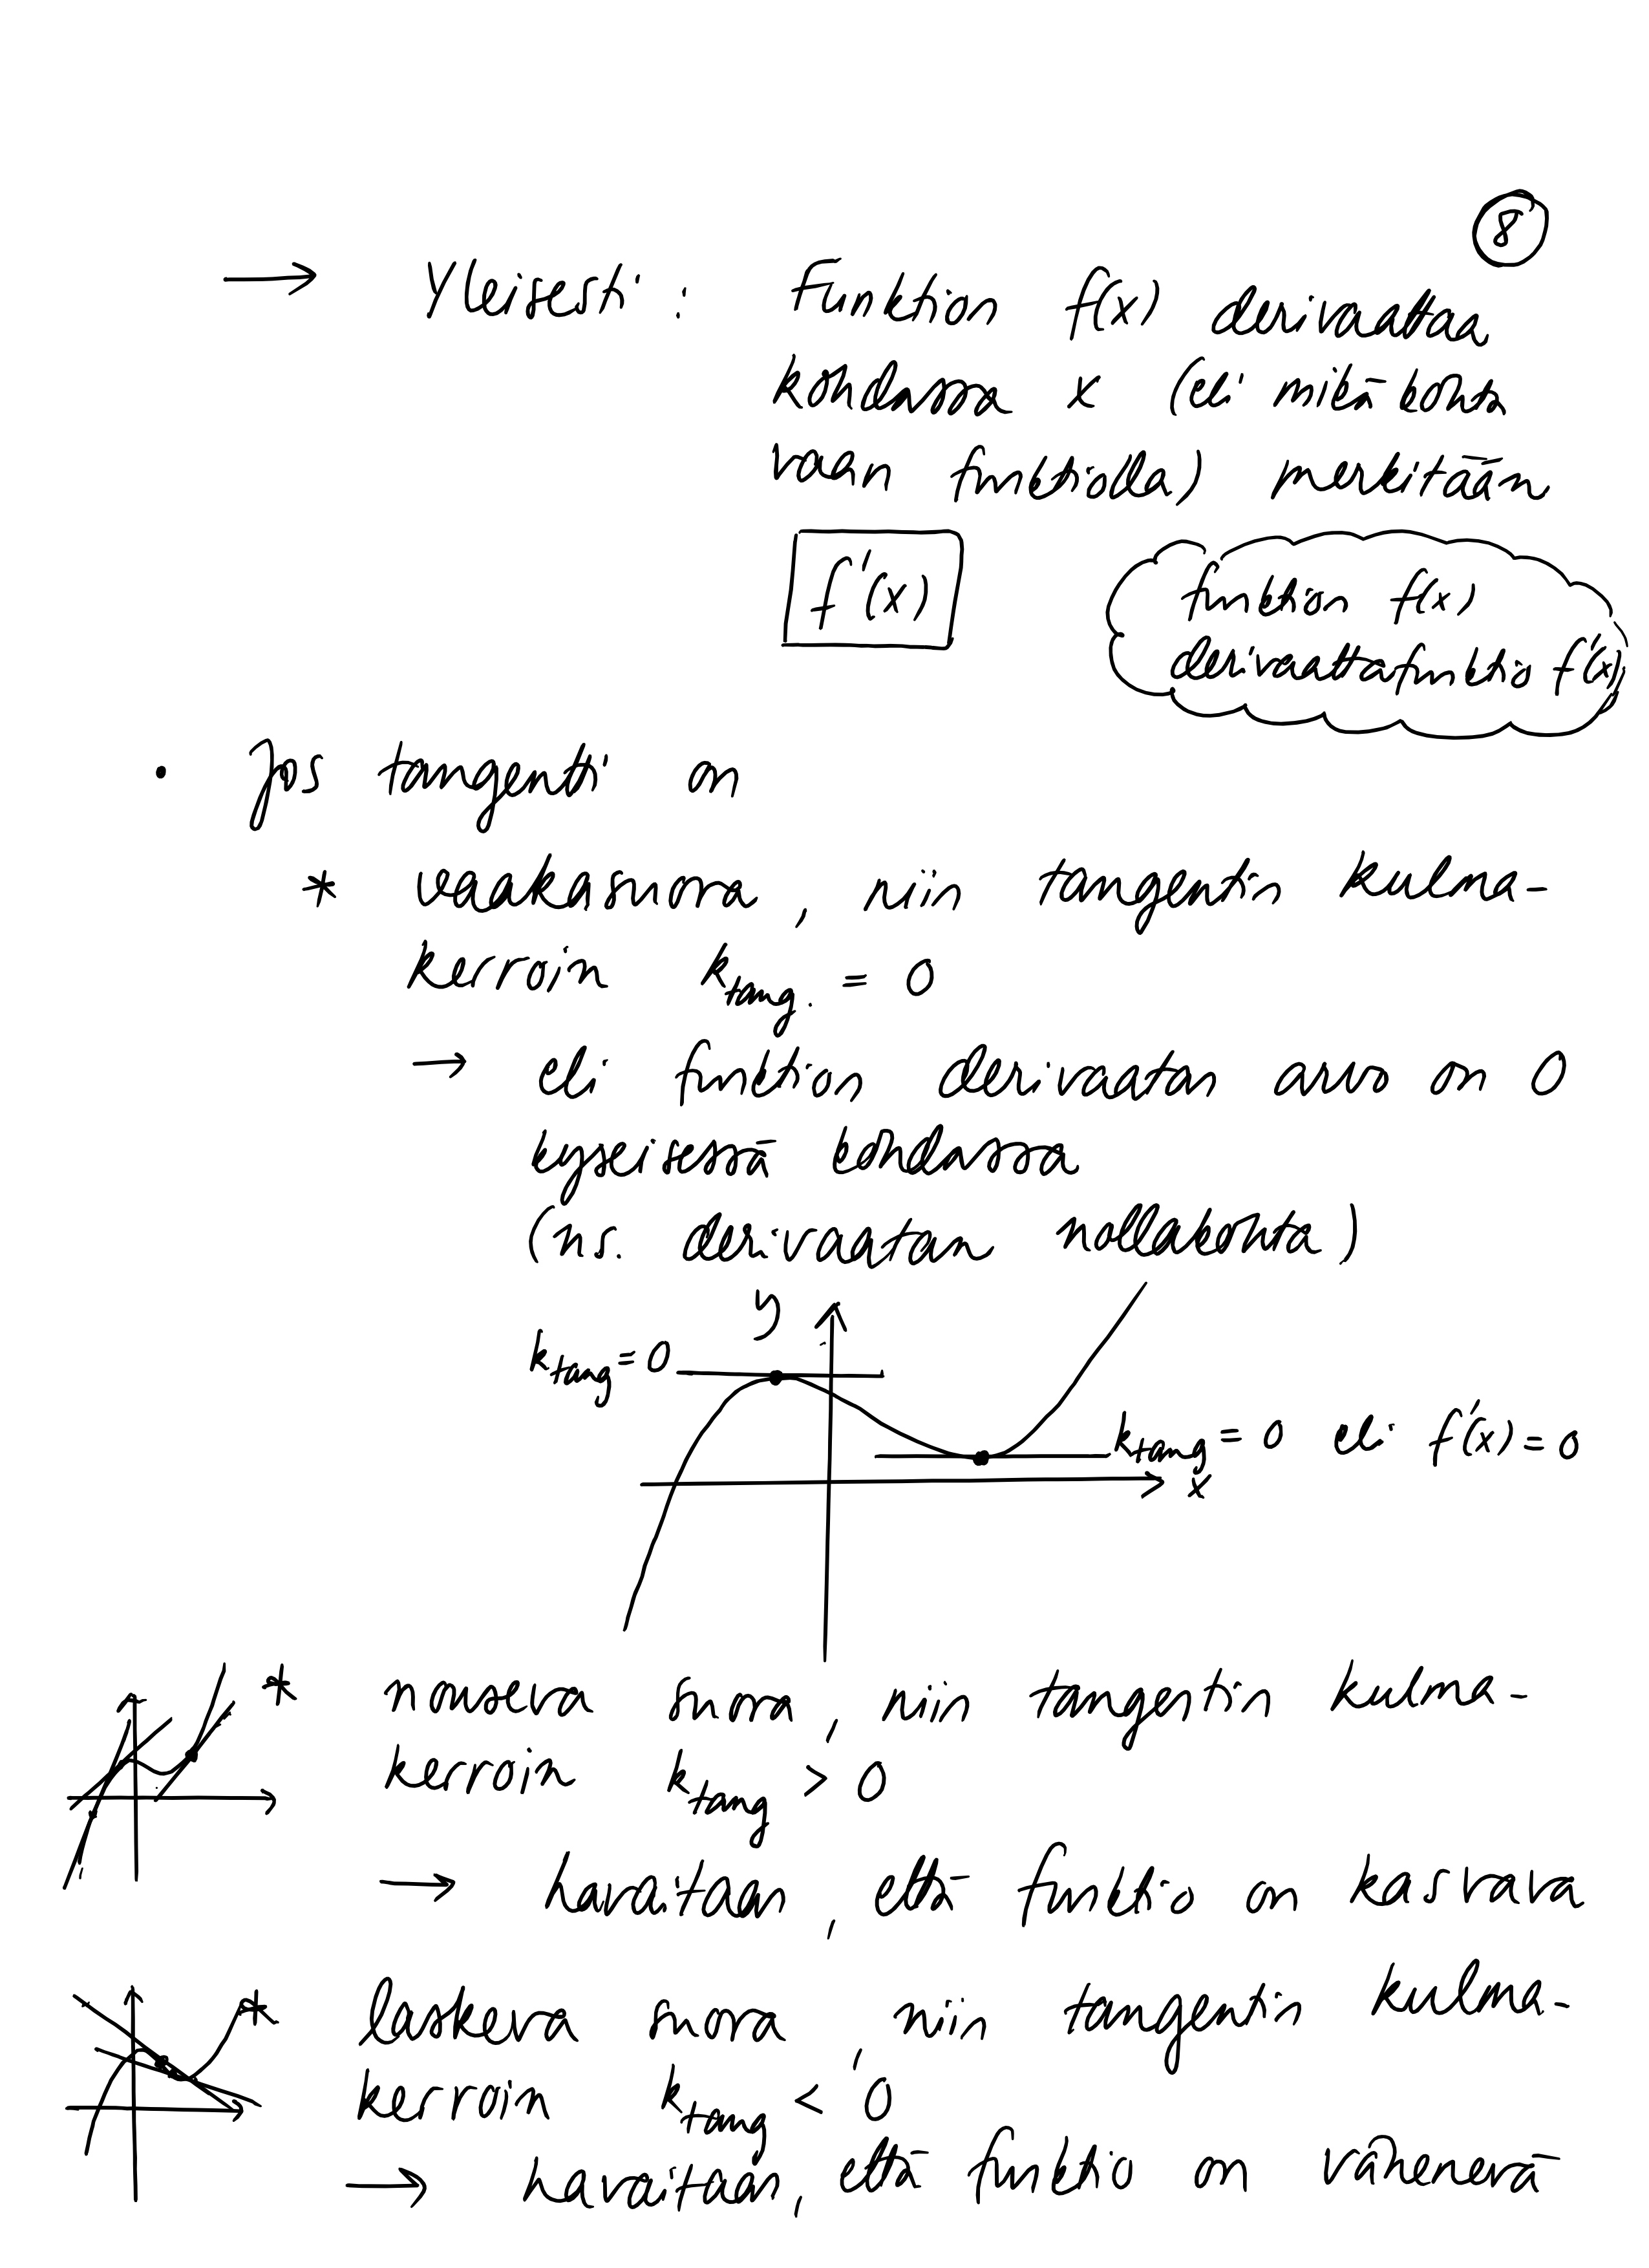 8
→ Yleisesti: Funktion f(x) derivaattaa
kohdassa x (eli mikä kohta
vaan funktiolla) merkitään
f'(x)
funktion f(x)
derivaattafunktio f'(x)
• Jos tangentti on
* vaakasuora, niin tangentin kulma-
kerroin k_tang. = 0
→ eli funktion derivaatan arvo on 0
kyseisessä kohdassa
(ns. derivaatan nollakohta)
y
k_tang = 0
k_tang = 0 eli f'(x) = 0
x
* nouseva suora, niin tangentin kulma-
kerroin k_tang > 0
→ havaitaan, että funktio on kasvava
* laskeva suora, niin tangentin kulma-
kerroin k_tang < 0
→ havaitaan, että funktio on vähenevä